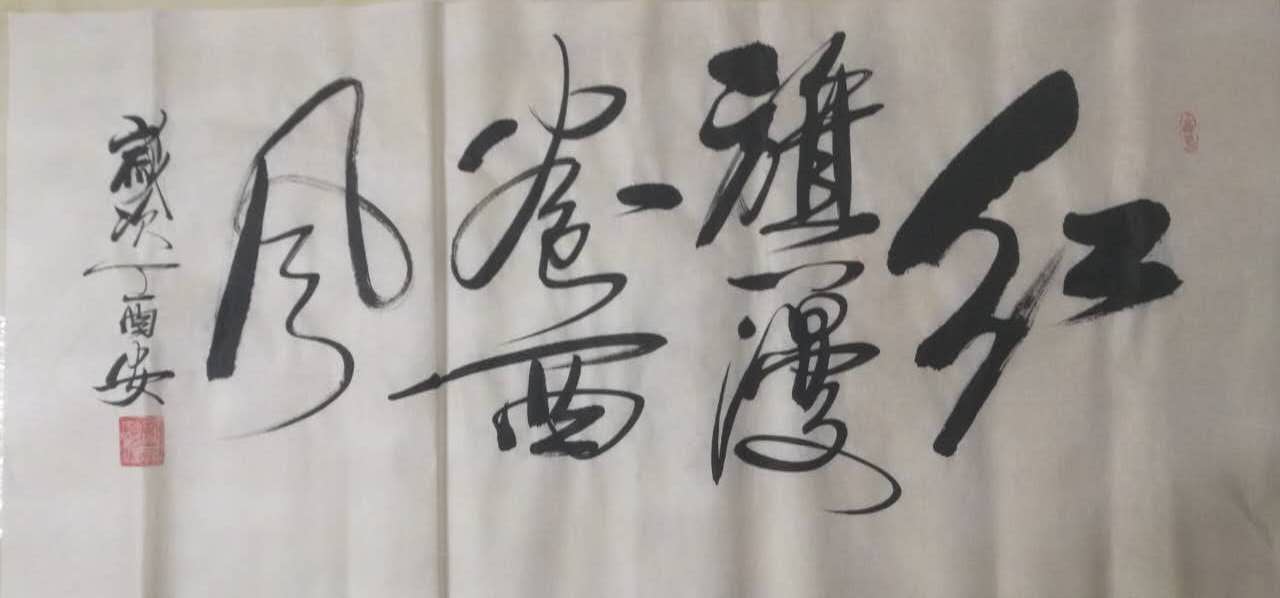 红
旗漫
卷西
风
歲次丁酉安